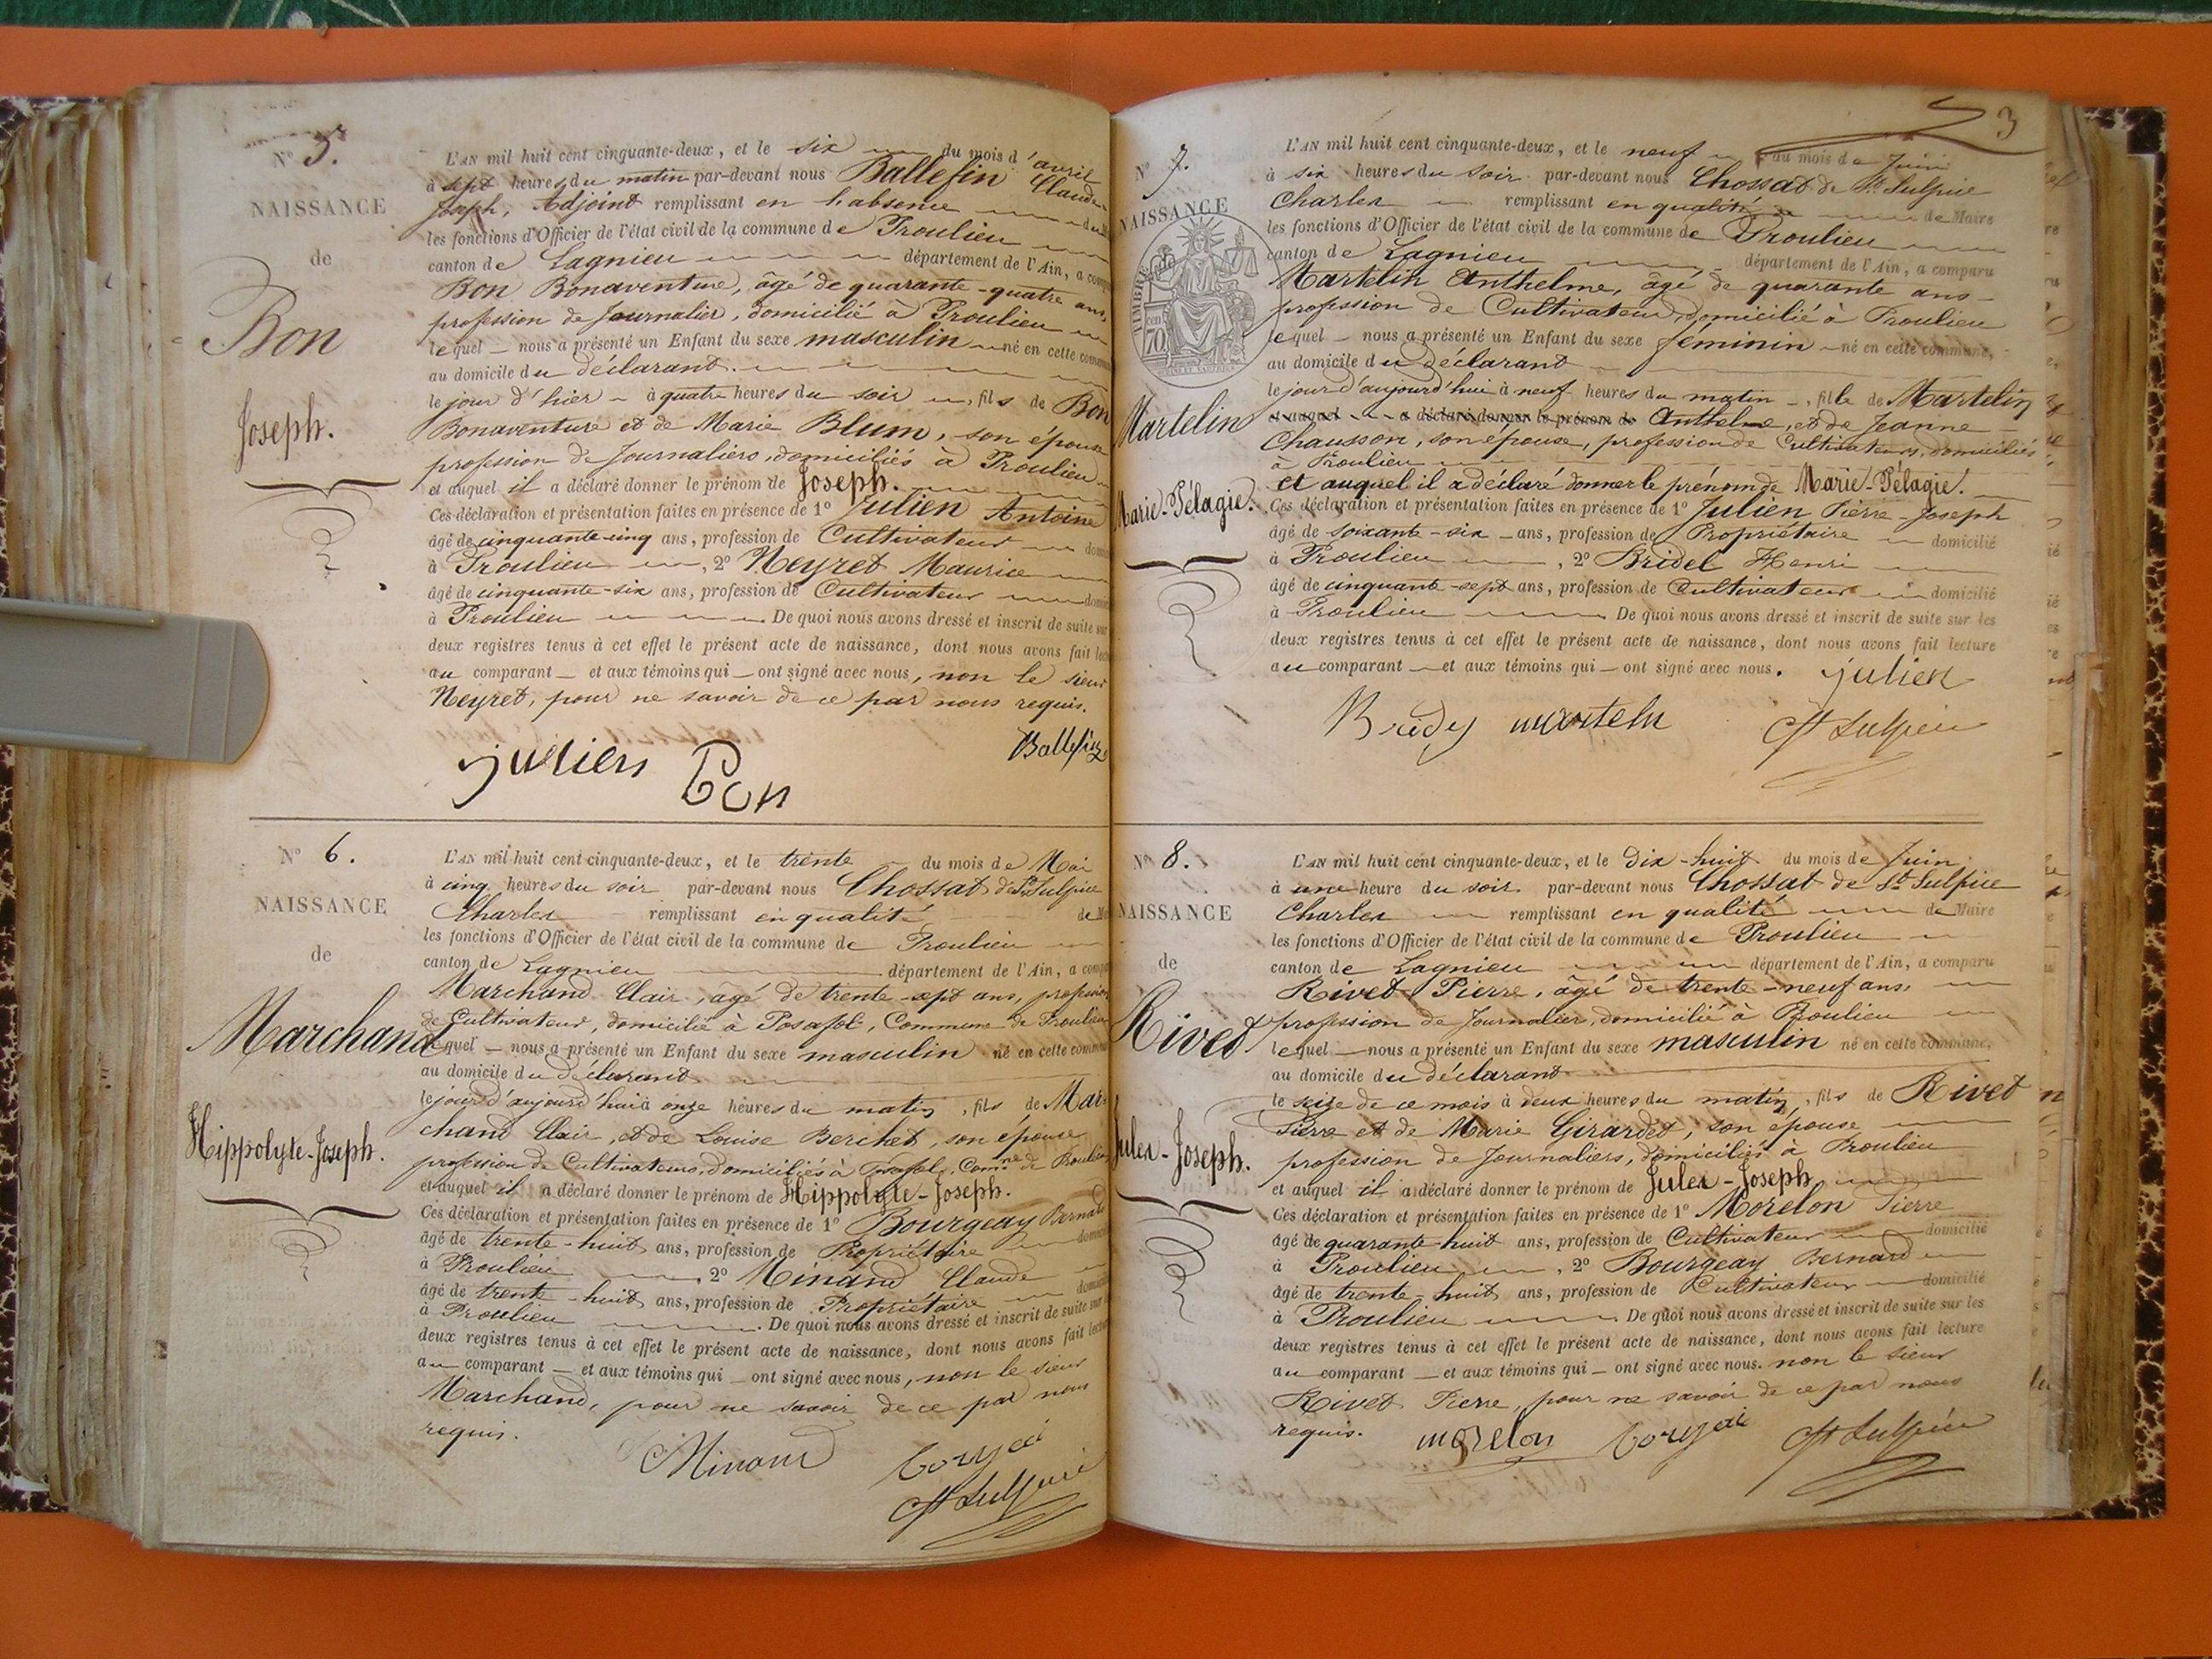 N° 5.
NAISSANCE
de
Bon
Joseph.
L'AN mil huit cent cinquante-deux, et le six du mois d'avril
à sept heures du matin par-devant nous Ballefin Claude
Joseph, Adjoint remplissant en l'absence du
les fonctions d'Officier de l'état civil de la commune de Proulieu
canton de Lagnieu département de l'Ain, a comp
Bon Bonaventure, âgé de quarante-quatre ans,
profession de Journalier, domicilié à Proulieu
lequel nous a présenté un Enfant du sexe masculin né en cette commu
au domicile du déclarant.
le jour d'hier à quatre heures du soir, fils de Bon
Bonaventure et de Marie Blum, son épouse
profession de Journaliers, domiciliés à Proulieu
et auquel il a déclaré donner le prénom de Joseph.
Ces déclaration et présentation faites en présence de 1° Julien Antoine
âgé de cinquante-cinq ans, profession de Cultivateur domi
à Proulieu, 2° Neyret Maurice
âgé de cinquante-six ans, profession de Cultivateur domic
à Proulieu. De quoi nous avons dressé et inscrit de suite sur
deux registres tenus à cet effet le présent acte de naissance, dont nous avons fait lect
au comparant et aux témoins qui ont signé avec nous, non le sieur
Neyret, pour ne savoir de ce par nous requis.
Ballefin
julien Bon
N° 6.
NAISSANCE
de
Marchand
Hippolyte-Joseph.
L'AN mil huit cent cinquante-deux, et le trente du mois de Mai
à cinq heures du soir par-devant nous Chossat de St Sulpice
Charles remplissant en qualité de M
les fonctions d'Officier de l'état civil de la commune de Proulieu
canton de Lagnieu département de l'Ain, a comp
Marchand Clair, âgé de trente-sept ans, profession
de Cultivateur, domicilié à Posafol, Commune de Proulieu
lequel nous a présenté un Enfant du sexe masculin né en cette comm
au domicile du déclarant
le jour d'aujourd'hui à onze heures du matin, fils de Mar-
chand Clair, et de Louise Berchet, son épouse
profession de Cultivateurs, domiciliés à Posafol, Com.ne de Proulieu
et auquel il a déclaré donner le prénom de Hippolyte-Joseph.
Ces déclaration et présentation faites en présence de 1° Bourgeay Bernard
âgé de trente-huit ans, profession de Propriétaire domic
à Proulieu 2° Minand Claude
âgé de trente-huit ans, profession de Propriétaire domic
à Proulieu. De quoi nous avons dressé et inscrit de suite sur
deux registres tenus à cet effet le présent acte de naissance, dont nous avons fait lectu
au comparant et aux témoins qui ont signé avec nous, non le sieur
Marchand, pour ne savoir de ce par nous
requis.
Minand
St Sulpice
3
N° 7.
NAISSANCE
TIMBRE
70
Martelin
Marie-Pélagie.
L'AN mil huit cent cinquante-deux, et le neuf du mois de Juin
à six heures du soir par-devant nous Chossat de St Sulpice
Charles remplissant en qualité de Maire
les fonctions d'Officier de l'état civil de la commune de Proulieu
canton de Lagnieu département de l'Ain, a comparu
Martelin Anthelme, âgé de quarante ans
profession de Cultivateur, domicilié à Proulieu
lequel nous a présenté un Enfant du sexe féminin né en cette commune,
au domicile du déclarant
le jour d'aujourd'hui à neuf heures du matin, fille de Martelin
et auquel a déclaré donner le prénom de Anthelme, et de Jeanne
Chausson, son épouse, profession de Cultivateurs, domiciliés
à Proulieu
et auquel il a déclaré donner le prénom de Marie-Pélagie.
Ces déclaration et présentation faites en présence de 1° Julien Pierre-Joseph
âgé de soixante-six ans, profession de Propriétaire domicilié
à Proulieu, 2° Bridel Henri
âgé de cinquante-sept ans, profession de Cultivateur domicilié
à Proulieu De quoi nous avons dressé et inscrit de suite sur les
deux registres tenus à cet effet le présent acte de naissance, dont nous avons fait lecture
au comparant et aux témoins qui ont signé avec nous. julien
martelin St Sulpice
N° 8.
NAISSANCE
de
Rivet
Jules-Joseph.
L'AN mil huit cent cinquante-deux, et le dix-huit du mois de Juin
à une heure du soir par-devant nous Chossat de St Sulpice
Charles remplissant en qualité de Maire
les fonctions d'Officier de l'état civil de la commune de Proulieu
canton de Lagnieu département de l'Ain, a comparu
Rivet Pierre, âgé de trente-neuf ans,
profession de Journalier, domicilié à Proulieu
lequel nous a présenté un Enfant du sexe masculin né en cette commune,
au domicile du déclarant
le seize de ce mois à deux heures du matin, fils de Rivet
Pierre et de Marie Girardet, son épouse
profession de Journaliers, domiciliés à Proulieu
et auquel il a déclaré donner le prénom de Jules-Joseph
Ces déclaration et présentation faites en présence de 1° Morelon Pierre
âgé de quarante-huit ans, profession de Cultivateur domicilié
à Proulieu, 2° Bourgeay Bernard
âgé de trente-huit ans, profession de Cultivateur domicilié
à Proulieu. De quoi nous avons dressé et inscrit de suite sur les
deux registres tenus à cet effet le présent acte de naissance, dont nous avons fait lecture
au comparant et aux témoins qui ont signé avec nous. non le sieur
Rivet Pierre, pour ne savoir de ce par nous
requis. morelon St Sulpice